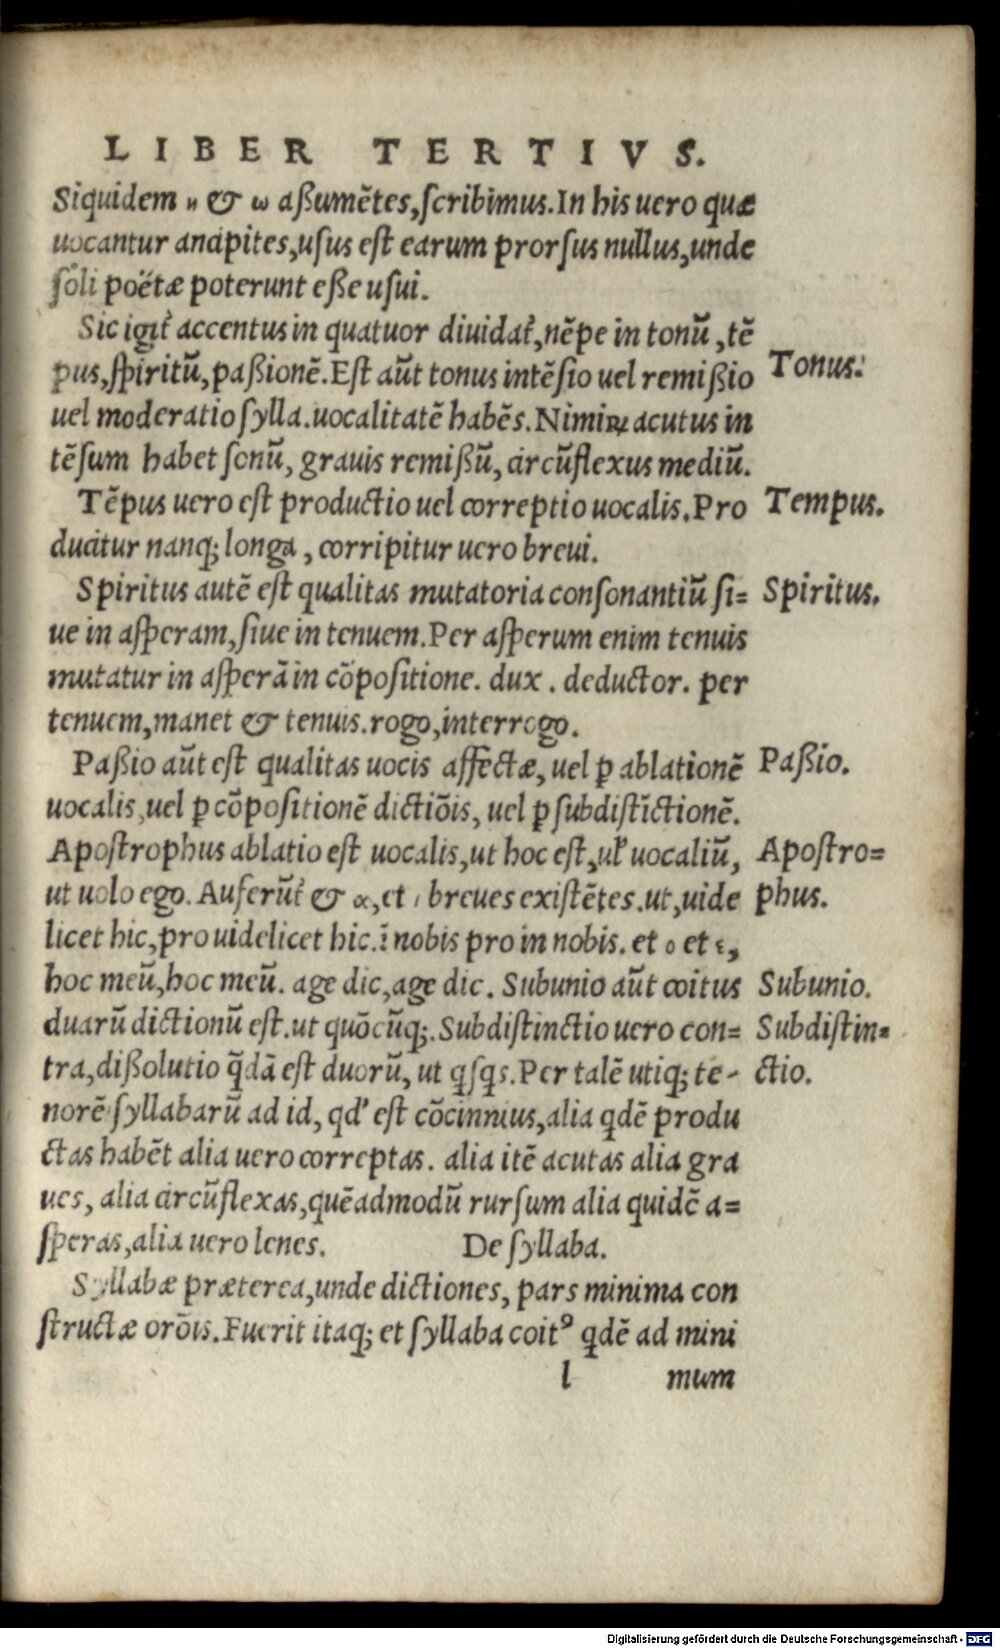 LIBER TERTIVS.
Siquidem η & ω aßumẽtes,ſcribimus.In his uero quæ
uocantur ancipites,uſus eſt earum prorſus nullus,unde
ſoli poëtæ poterunt eße uſui.
Sic igit᷑ accentus in quatuor diuidat᷑,nẽpe in tonũ,tẽ
pus,ſpiritũ,paßionẽ.Eſt aũt tonus intẽſio uel remißio
Tonus.
uel moderatio ſylla.uocalitatẽ habẽs.Nimiꝝ acutus in
tẽſum habet ſonũ, grauis remißũ, circũflexus mediũ.
Tẽpus uero eſt productio uel correptio uocalis.Pro
Tempus.
ducitur nanq; longa, corripitur uero breui.
Spiritus autẽ eſt qualitas mutatoria conſonantiũ ſi=
Spiritus.
ue in aſperam,ſiue in tenuem.Per aſperum enim tenuis
mutatur in aſperã in cõpoſitione. dux. deductor. per
tenuem,manet & tenuis.rogo,interrogo.
Paßio aũt eſt qualitas uocis affectæ, uel ꝑ ablationẽ
Paßio.
uocalis,uel ꝑ cõpoſitionẽ dictiõis, uel ꝑ ſubdiſtĩctionẽ.
Apoſtrophus ablatio eſt uocalis,ut hoc eſt, ul̓ uocaliũ,
Apoſtro=
ut uolo ego. Auferũt᷑ & α, et ι breues exiſtẽtes.ut,uide
phus.
licet hic,pro uidelicet hic.ĩ nobis pro in nobis. et ο et ε,
hoc meũ,hoc meũ. age dic,age dic. Subunio aũt coitus
Subunio.
duarũ dictionũ eſt.ut quõcũq;. Subdiſtinctio uero con=
Subdiſtin=
tra,dißolutio q̃dã eſt duorũ, ut qſqs.Per talẽ utiq; te-
ctio.
norẽ ſyllabarũ ad id, qd̓ eſt cõcinnius,alia qdẽ produ
ctas habẽt alia uero correptas. alia itẽ acutas alia gra
ues, alia circũflexas,quẽadmodũ rurſum alia quidẽ a=
ſperas,alia uero lenes.
De ſyllaba.
Syllabæ præterea,unde dictiones, pars minima con
ſtructæ orõis.Fuerit itaq; et ſyllaba coitꝰ qdẽ ad mini
l mum
Digitalisierung gefördert durch die Deutsche Forschungsgemeinschaft - DFG